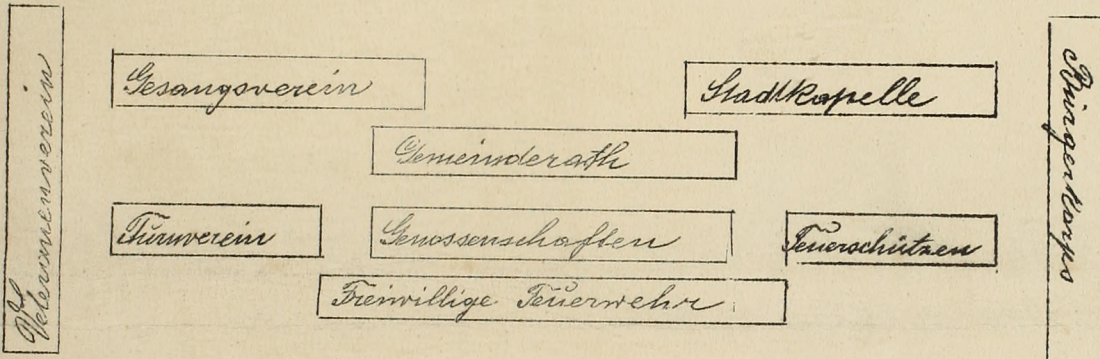 Veteranenverein
Gesangsverein
Stadtkapelle
Gemeinderath
Turnverein
Genossenschaften
Feuerschützen
Freiwillige Feuerwehr
Bürgerkorps